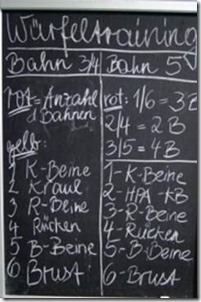 Würfeltraining
Bahn 3/4
rot = Anzahl
d Bahnen
gelb:
1 K-Beine
2 Kraul
3 R-Beine
4 Rücken
5 B-Beine
6 Brust
Bahn 5
rot: 1/6 = 3B
2/4 = 2 B
3/5 = 4 B
1-K-Beine
2-HPA-KB
3-R-Beine
4-Rücken
5-B-Beine
6-Brust